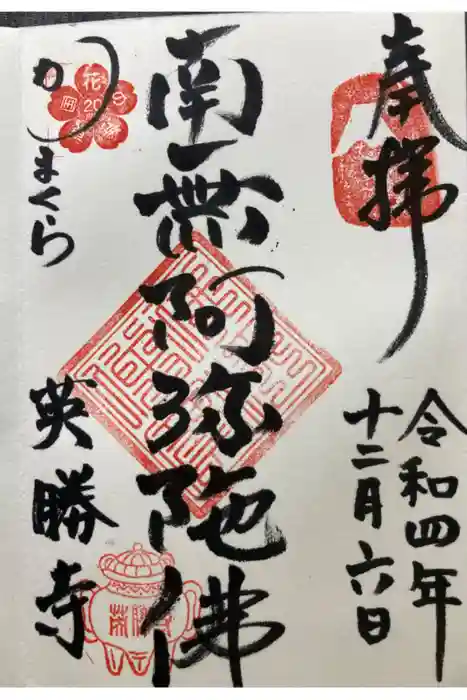 奉拝
令和四年
十二月六日
南無阿弥陀佛
かまくら
英勝寺
花
20
英勝寺